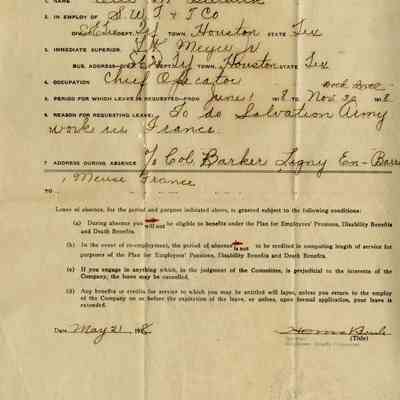 1. NAME
2. IN EMPLOY OF S.W.T. & T Co
TOWN, Houston STATE Tex
3. IMMEDIATE SUPERIOR,
BUS. ADDRESS—DIV. DEPT. TOWN, Houston STATE Tex
4. OCCUPATION Chief Operator
5. PERIOD FOR WHICH LEAVE IS REQUESTED—FROM June 1 1918 TO Nov 30 1918
6. REASON FOR REQUESTING LEAVE: To do Salvation Army
work in France.
7. ADDRESS DURING ABSENCE % Col. Barker Ligny En-Barr
, Meuse France
TO
Leave of absence, for the period and purpose indicated above, is granted subject to the following conditions:
(a) During absence you will not be eligible to benefits under the Plan for Employees' Pensions, Disability Benefits
and Death Benefits.
(b) In the event of re-employment, the period of absence is not to be credited in computing length of service for
purposes of the Plan for Employees' Pensions, Disability Benefits and Death Benefits.
(c) If you engage in anything which, in the judgment of the Committee, is prejudicial to the interests of the
Company, the leave may be cancelled.
(d) Any benefits or credits for service to which you may be entitled will lapse, unless you return to the employ
of the Company on or before the expiration of the leave, or unless, upon formal application, your leave is
extended.
Date May 21 1918
(Title)